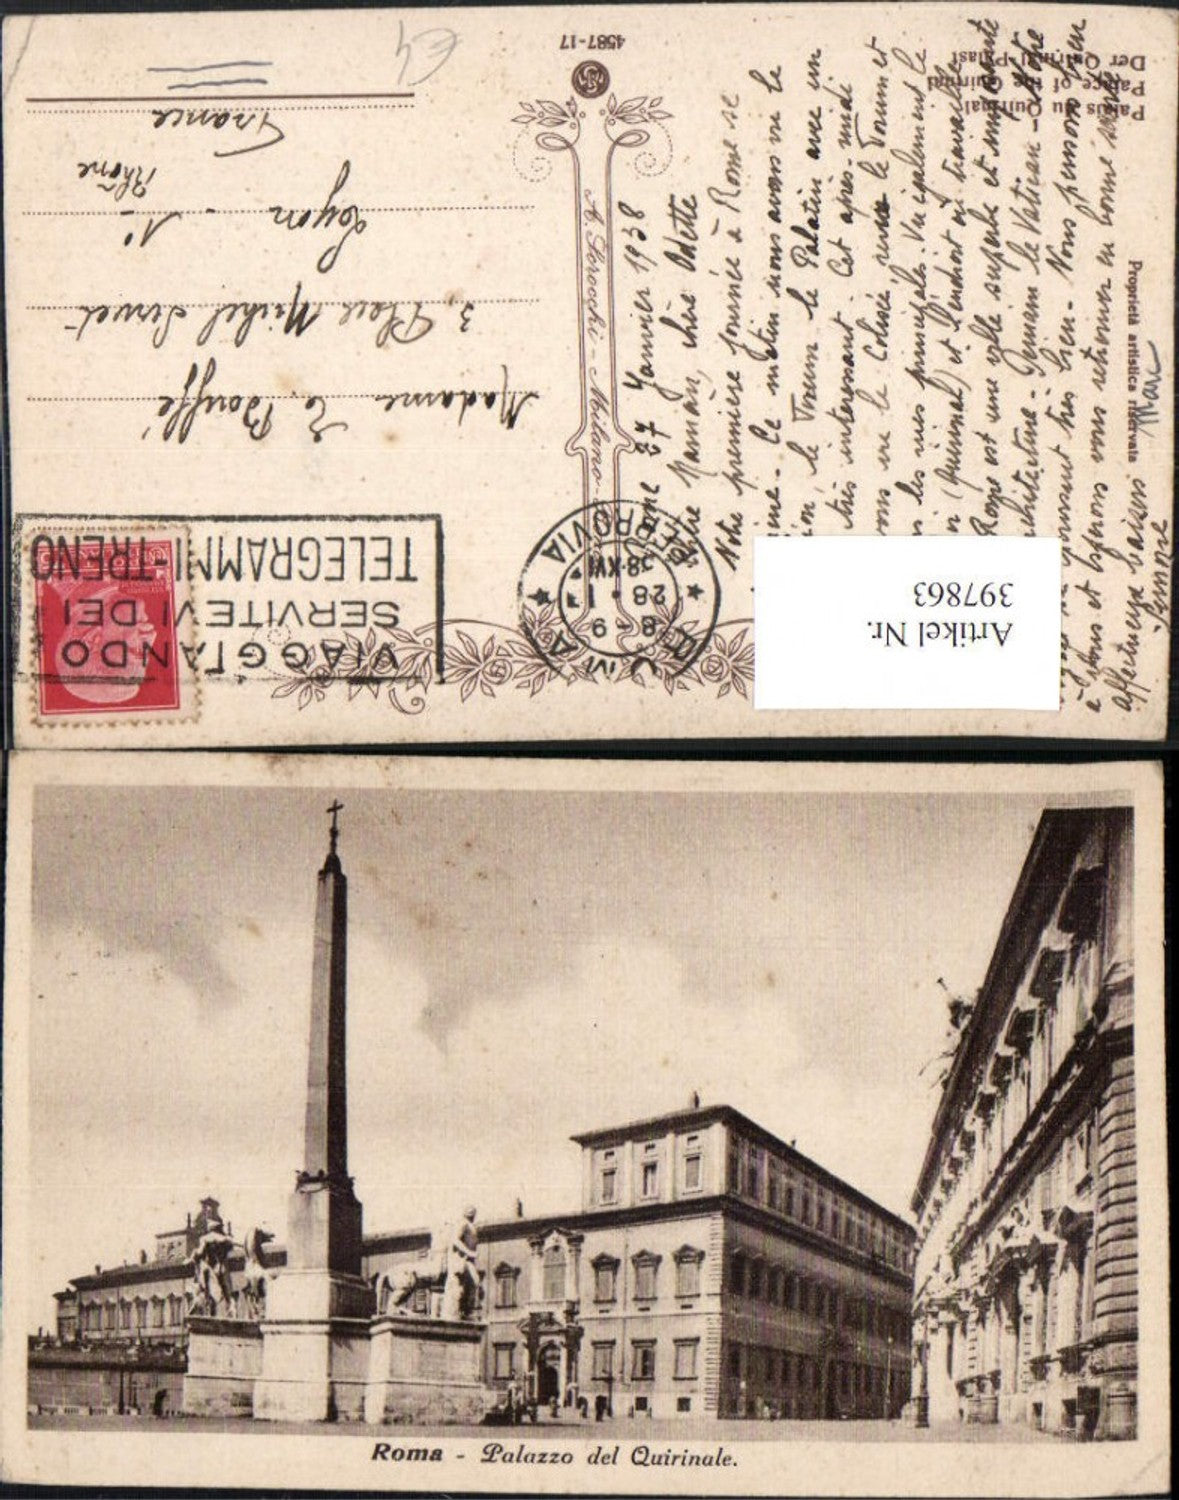 4587-17
Palais du Quirinal
Palace of the Quirinal
Der Quirinal-Palast
Proprietà artistica riservata
A. Scrocchi - Milano
VIAGGIANDO
SERVITEVI DEI
TELEGRAMMI-TRENO
FERROVIA
8-9
28·1
38·XVI
Madame E. Bouffé
3, Place Michel Servet
Lyon - 1º
Rhône
France
Rome 27 Janvier 1938
Maman, chère Odette
Notre première journée à Rome se
Ce matin nous avons vu le
le Forum le Palatin avec un
très intéressant. Cet après-midi
vu le Colisée revu le Forum et
les rues principales. Vu également le
(Quirinal) et l'endroit où travaille
Rome est une ville superbe et
architecture - Demain le Vatican - Notre
très bien - Nous pensons bien
à vous et espérons vous retrouver en bonne santé
affectueux baisers
Simone
Marc
Artikel Nr.
397863
Roma - Palazzo del Quirinale.